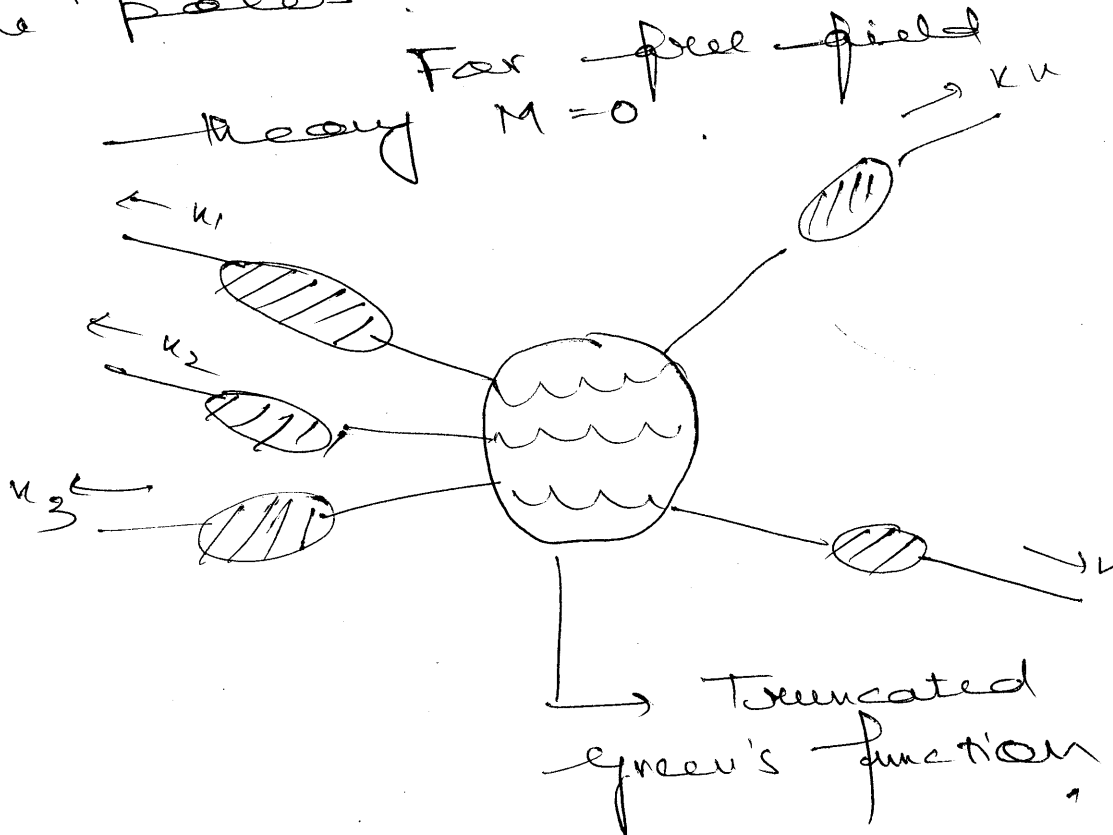 poles.
For free field
theory M = 0 .
k1
k2
k3
Truncated
Green's function